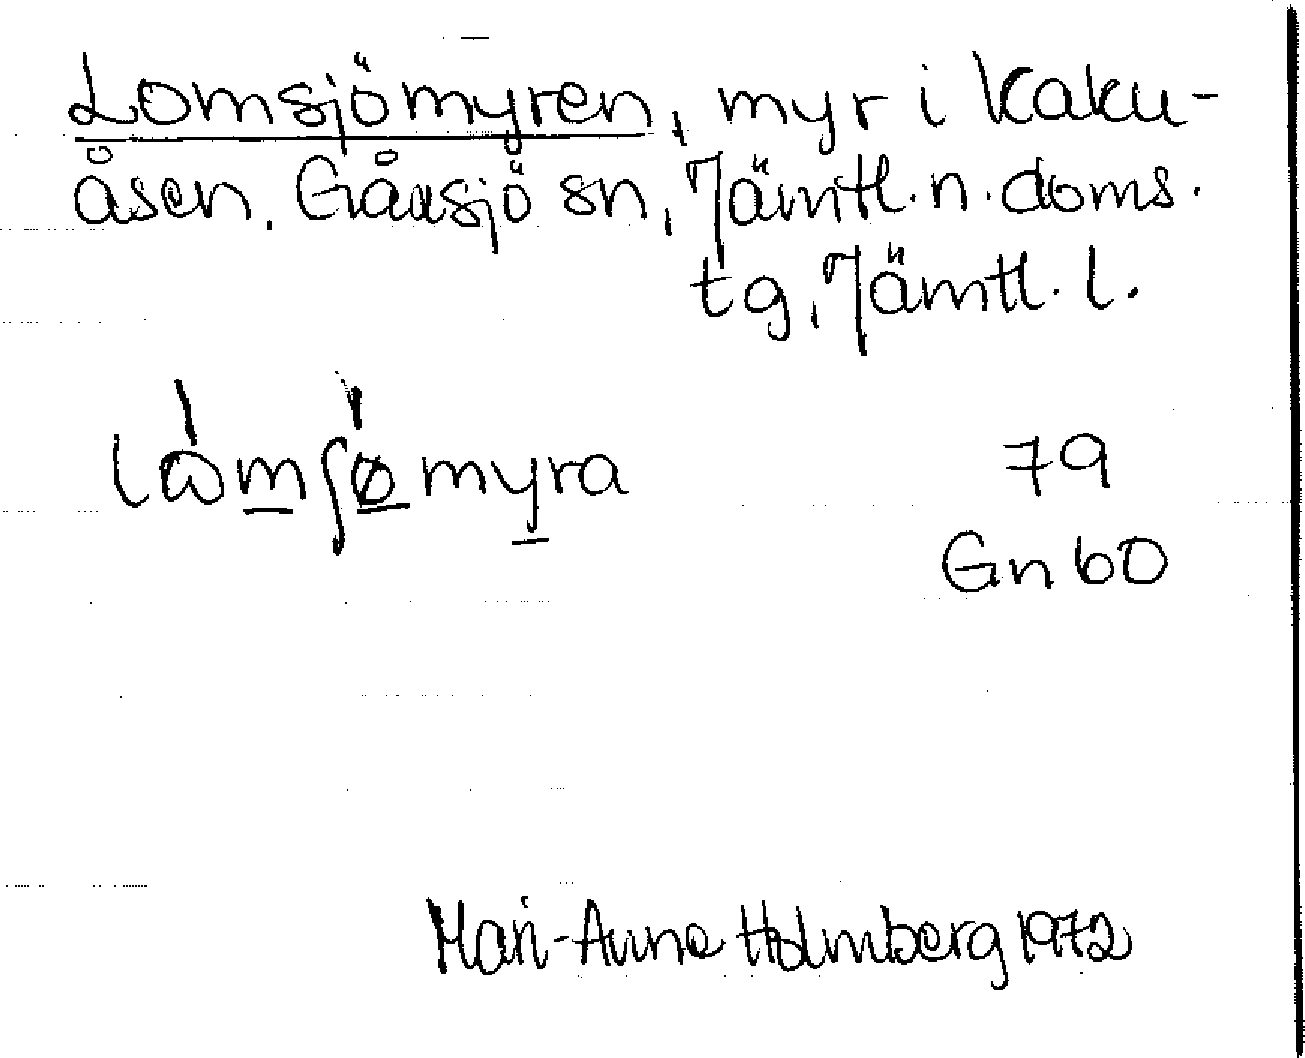 Lomsjömyren, myr i Kaku-
åsen. Gåxsjö sn, Jämtl. n. doms.
tg, Jämtl. l.
lòmʃømyra 79
Gn 60
Mari-Anne Holmberg 1972